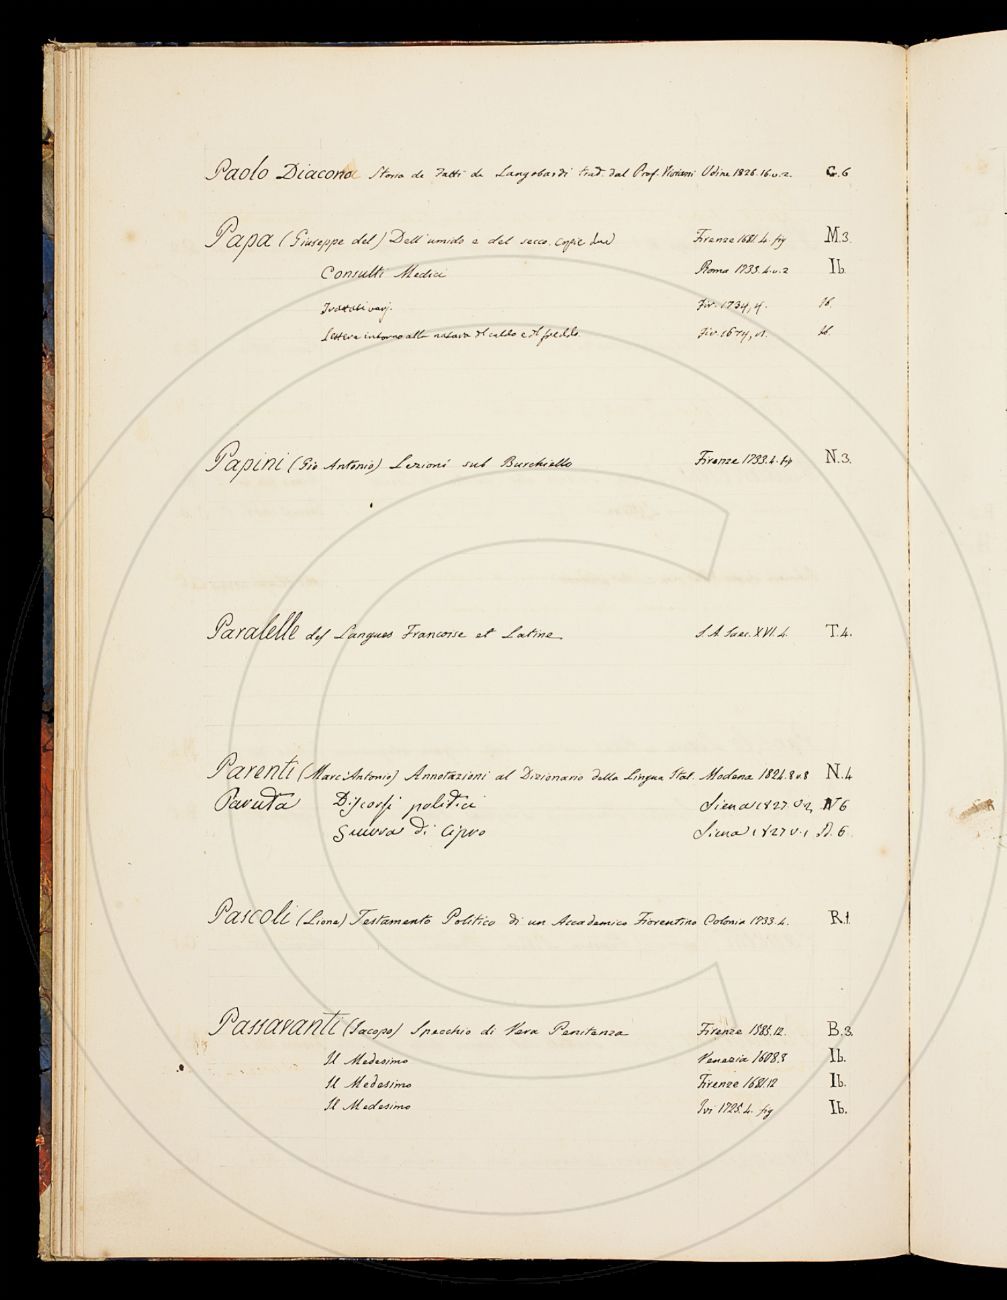 Paolo Diacono Storia de Fatti de Langobardi trad. dal Prof. Viviani Udine 1826. 16 v. 2. C. 6
Papa (Giuseppe del) Dell'umido e del secco. copie due Firenze 1681. 4. fig M. 3.
Consulti Medici Roma 1733. 4. v. 2 Ib.
Trattati varj. Fir. 1734, 4. Ib.
Lettera intorno alla natura del caldo e del freddo. Fir. 1674, Ib.
Papini (Gio Antonio) Lezioni sul Burchiello Firenze 1733. 4. fig N. 3.
Paralelle des Langues Francoise et Latine S. A. Saec. XVI. 4. T. 4.
Parenti (Marc'Antonio) Annotazioni al Dizionario della Lingua Ital. Modena 1824. 8 v. 8 N. 4
Paruta Discorsi politici Siena 1827 v. 2, N 6
Guerra di Cipro Siena 1827 v. 1 N. 6
Pascoli (Lione) Testamento Politico di un Accademico Fiorentino Colonia 1733. 4. R. 1.
Passavanti (Jacopo) Specchio di Vera Penitenza Firenze 1585. 12. B. 3.
Il Medesimo Venezia 1608. 8 Ib.
Il Medesimo Firenze 1681 12 Ib.
Il Medesimo Ivi 1725. 4. fig Ib.